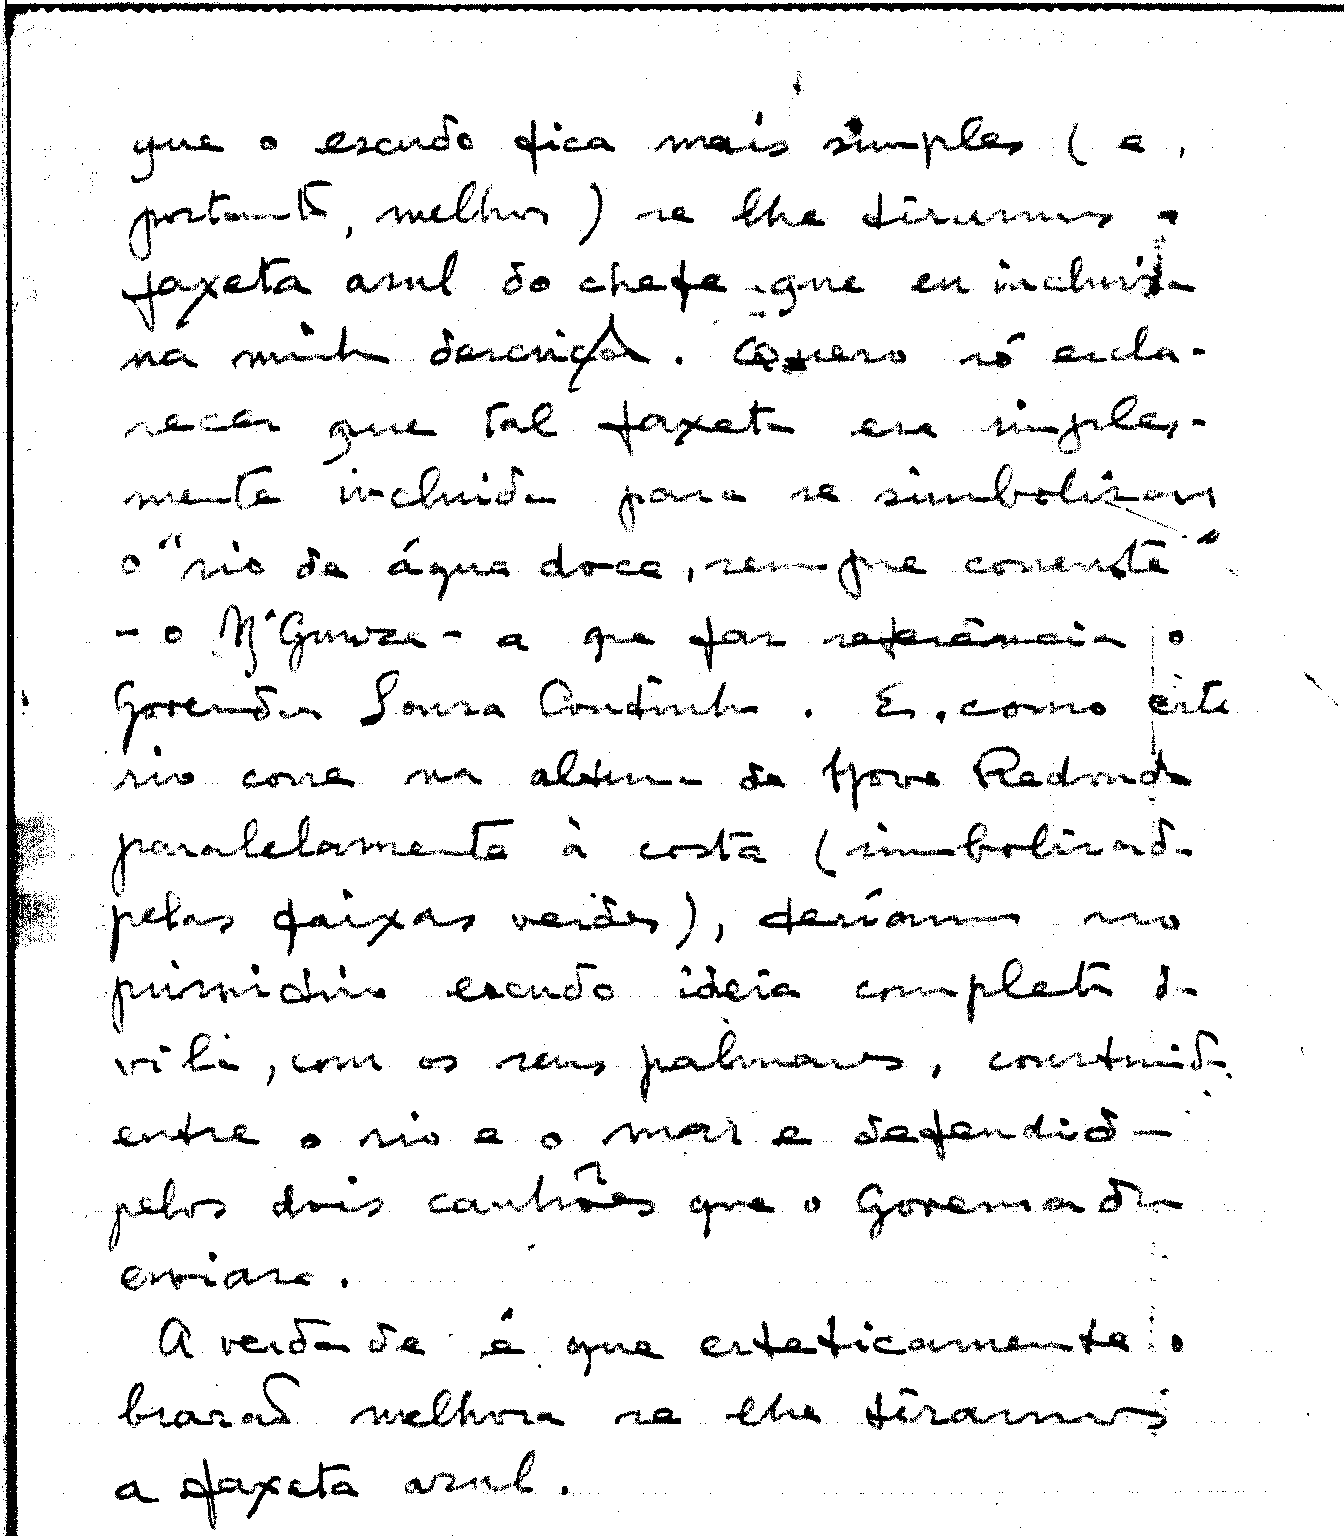 que o escudo fica mais simples (e,
portanto, melhor) se lhe tirarmos a
faxeta azul do chefe que eu incluira
na minha descrição. Quero só escla-
recer que tal faxeta era simples-
mente incluida para se simbolizar
o "rio de água doce, sempre corrente"
- o N'Gunza - a que faz referência o
Governador Souza Coutinho. E, como este
rio corre na altura de Novo Redondo
paralelamente à costa (simbolizada
pelas faixas verdes), deriamos no
primeiro escudo ideia completa da
vila, com os seus palmares, construida
entre o rio e o mar e defendida
pelos dois canhões que o Governador
enviara.
A verdade é que esteticamente o
brazão melhora se lhe tiramos
a faxeta azul.